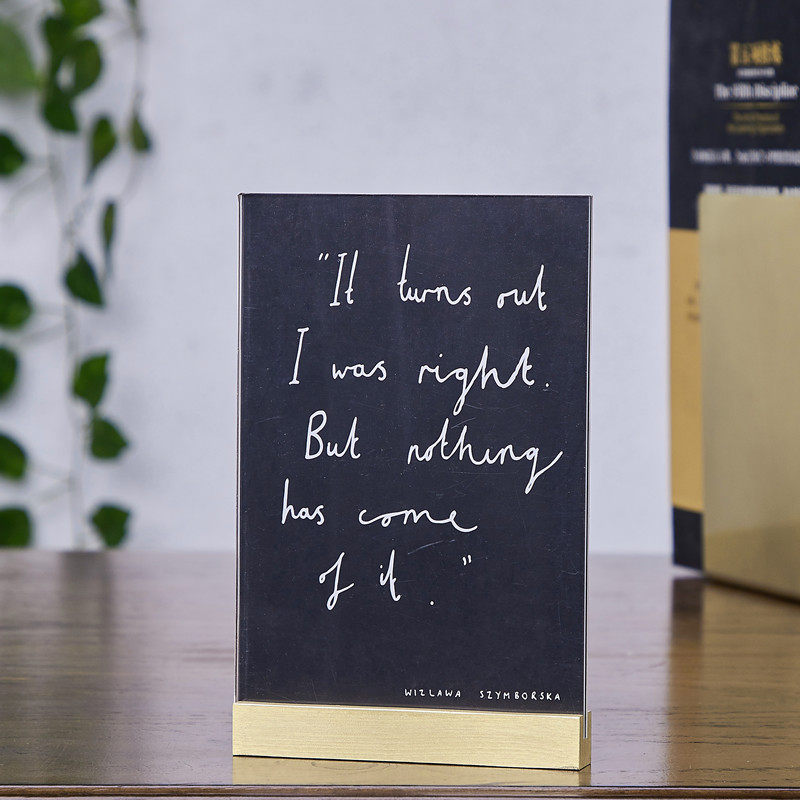 "It turns out
I was right.
But nothing
has come
of it."
WIZLAWA SZYMBORSKA